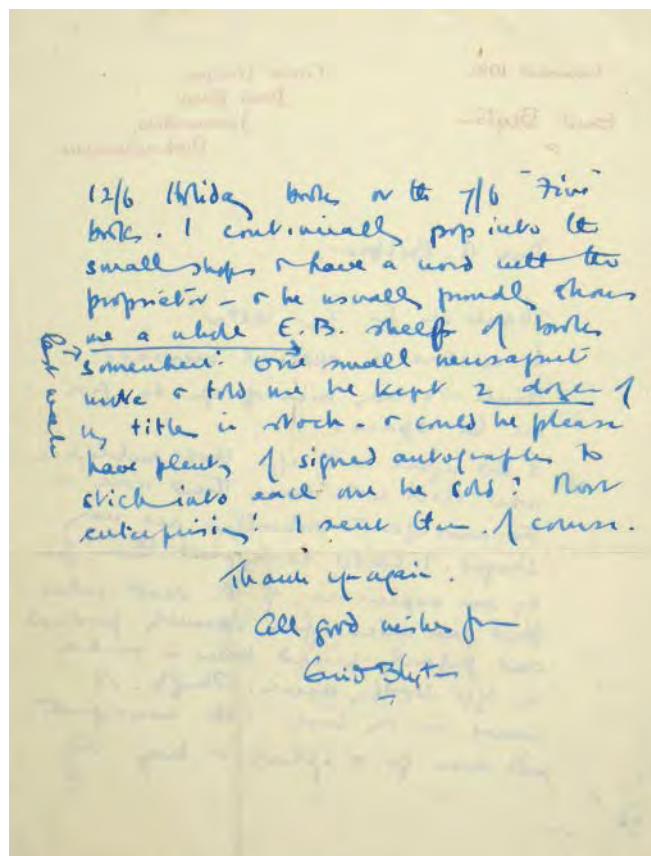 12/6 Holiday books or the 7/6 "Five"
books. I continually pop into the
small shops & have a word with the
proprietor — & he usually proudly shows
me a whole E.B. shelf of books
last week
somewhere! One small newsagent
wrote & told me he kept 2 dozen of
my titles in stock - & could he please
have plenty of signed autographs to
stick into each one he sold! Most
enterprising! I sent them, of course.
Thank you again.
All good wishes from
Enid Blyton